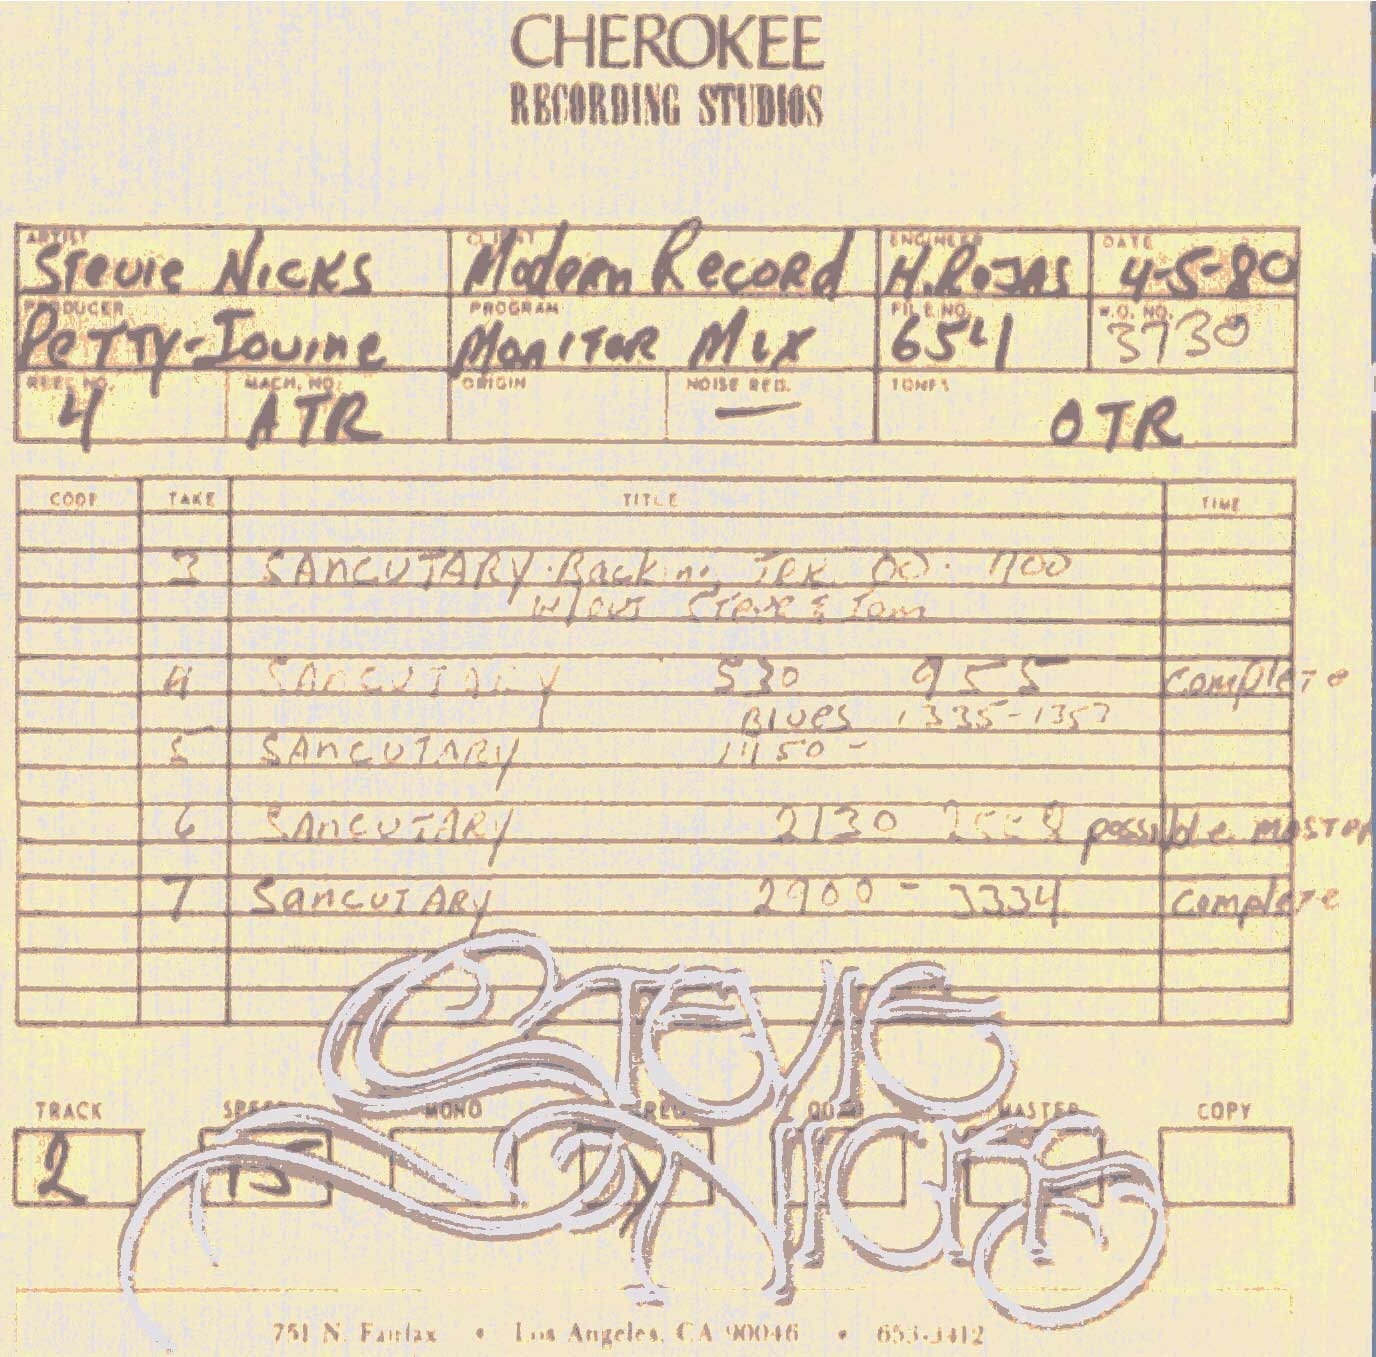 CHEROKEE
RECORDING STUDIOS
ARTIST CLIENT ENGINEER DATE
Stevie Nicks Modern Record H. Rojas 4-5-80
PRODUCER PROGRAM FILE NO. W.O. NO.
Petty-Iovine Monitor Mix 6541 3730
REEL NO. MACH. NO. ORIGIN NOISE RED. TONES
4 ATR — OTR
CODE TAKE TITLE TIME
3 SANCUTARY Backing 00 · 1700
w/out Steve & Tom
4 SANCUTARY 530 955 complete
Blues 1335-1353
5 SANCUTARY 1450 -
6 SANCUTARY 2130 possible master
7 SANCUTARY 2900 - 3334 complete
STEVIE
NICKS
TRACK SPEED MONO QUAD MASTER COPY
2 15
751 N. Fairfax • Los Angeles, CA 90046 • 653-3412